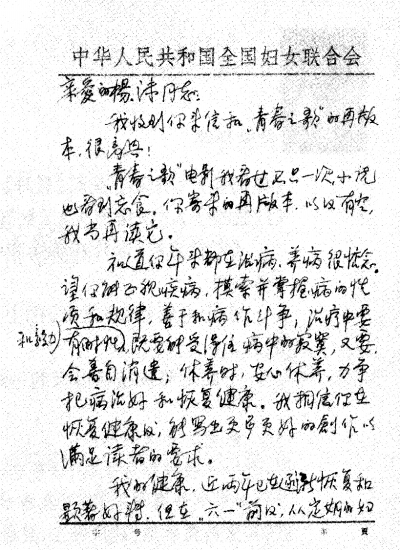 中华人民共和国全国妇女联合会
亲爱的楊沫同志:
我收到你来信和“青春之歌”的再版
本,很高兴!
“青春之歌”电影我看过不只一次,小说
也看到忘食。你寄来的再版本,以后有空,
我当再读它。
知道你年来都在治病、养病很惦念。
望你能正视疾病,摸索并掌握病的性
质和规律,善于和病作斗争,治疗中要
和毅力
有耐性,既要能受得住病中的寂寞,又要
会善自消遣;休养时,安心休养,力争
把病治好和恢复健康。我相信你在
恢复健康后,能写出更多更好的創作以
滿足读者的要求。
我的健康,近两年已在逐渐恢复和
顯著好轉,但在“六一”前后,从定期的妇
字号 年 頁